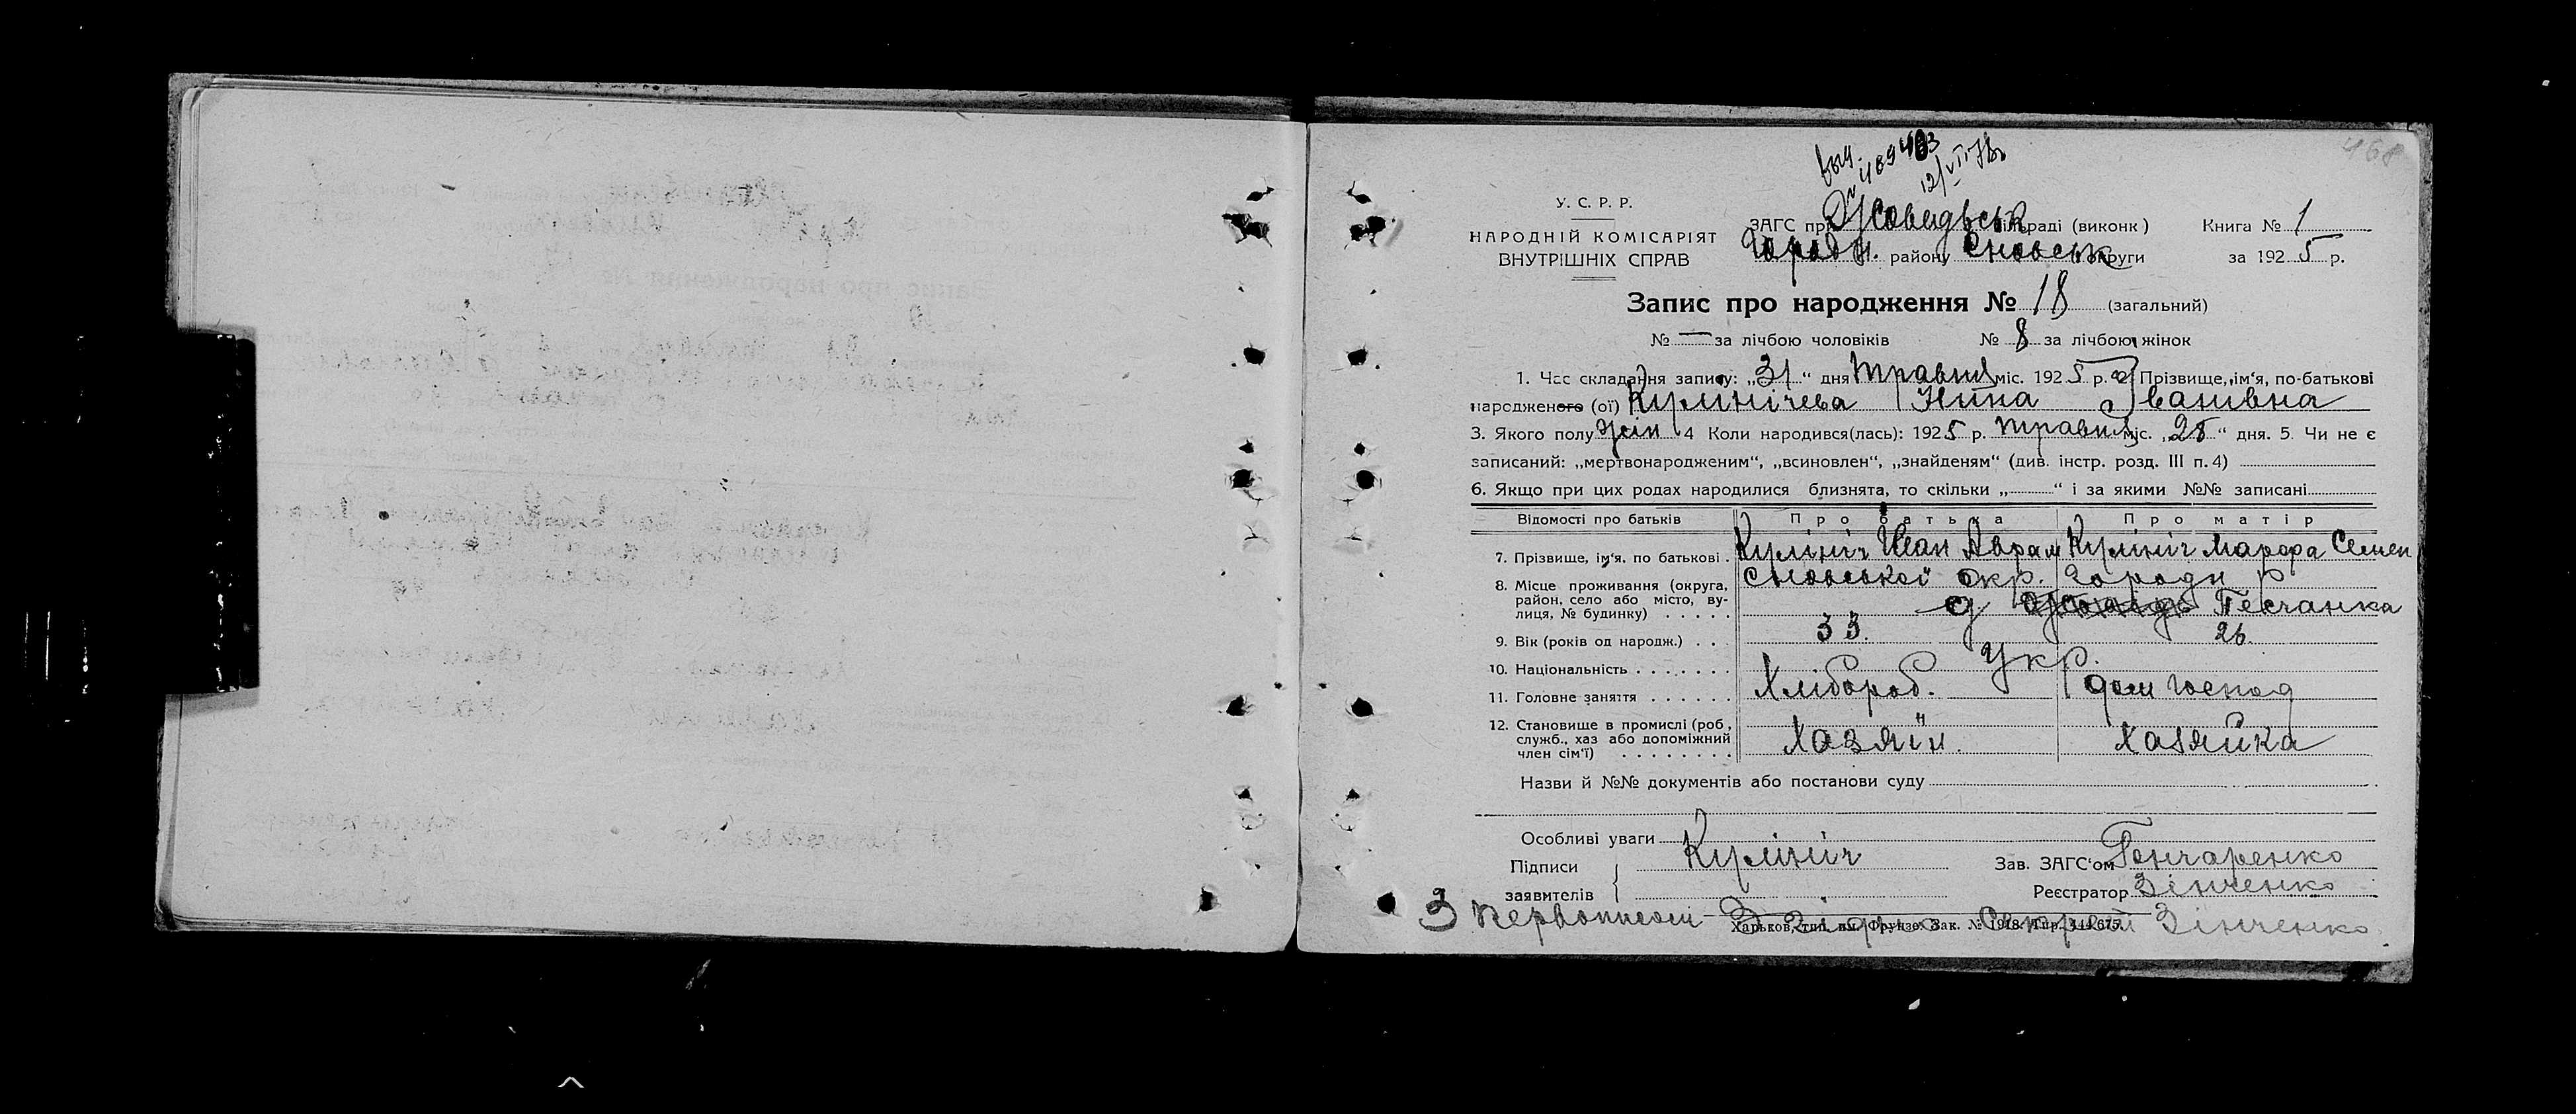 468
выд. 489403
12/VI-73
У. С. Р. Р.
НАРОДНІЙ КОМІСАРІЯТ
ВНУТРІШНІХ СПРАВ
ЗАГС при Дроздовськ сільраді (виконк)
Городн. району Сновськ округи
Книга № 1
за 1925 р.
Запис про народження № 18 (загальний)
№ — за лічбою чоловіків № 8 за лічбою жінок
1. Час складання запису: „31“ дня травня міс. 1925 р. 2. Прізвище, ім'я, по-батькові
народженого (ої) Кулінічева Нина Іванівна
3. Якого полу жін 4 Коли народився(лась): 1925 р. травня міс. „28“ дня. 5. Чи не є
записаний: „мертвонародженим“, „всиновлен“, „знайденям“ (див. інстр. розд. III п. 4)
6. Якщо при цих родах народилися близнята, то скільки „ “ і за якими №№ записані
Відомості про батьків Про батька Про матір
7. Прізвище, ім'я, по батькові Кулініч Иван Аврам Кулініч Марфа Семен
8. Місце проживання (округа, район, село або місто, вулиця, № будинку) Сновської окр. Городн р
Песчанка
9. Вік (років од народж.) 33. 26.
10. Національність Укр.
11. Головне заняття Хлібороб. дом господ
12. Становище в промислі (роб, служб., хаз або допоміжний член сім'ї) Хазяїн. Хазяйка
Назви й №№ документів або постанови суду
Особливі уваги
Підписи заявителів Кулініч
Зав. ЗАГС'ом Гончаренко
Реєстратор Зінченко
З первописом згідно Секрет Зінченко
Харьков, тип. им. Фрунзе. Зак. №